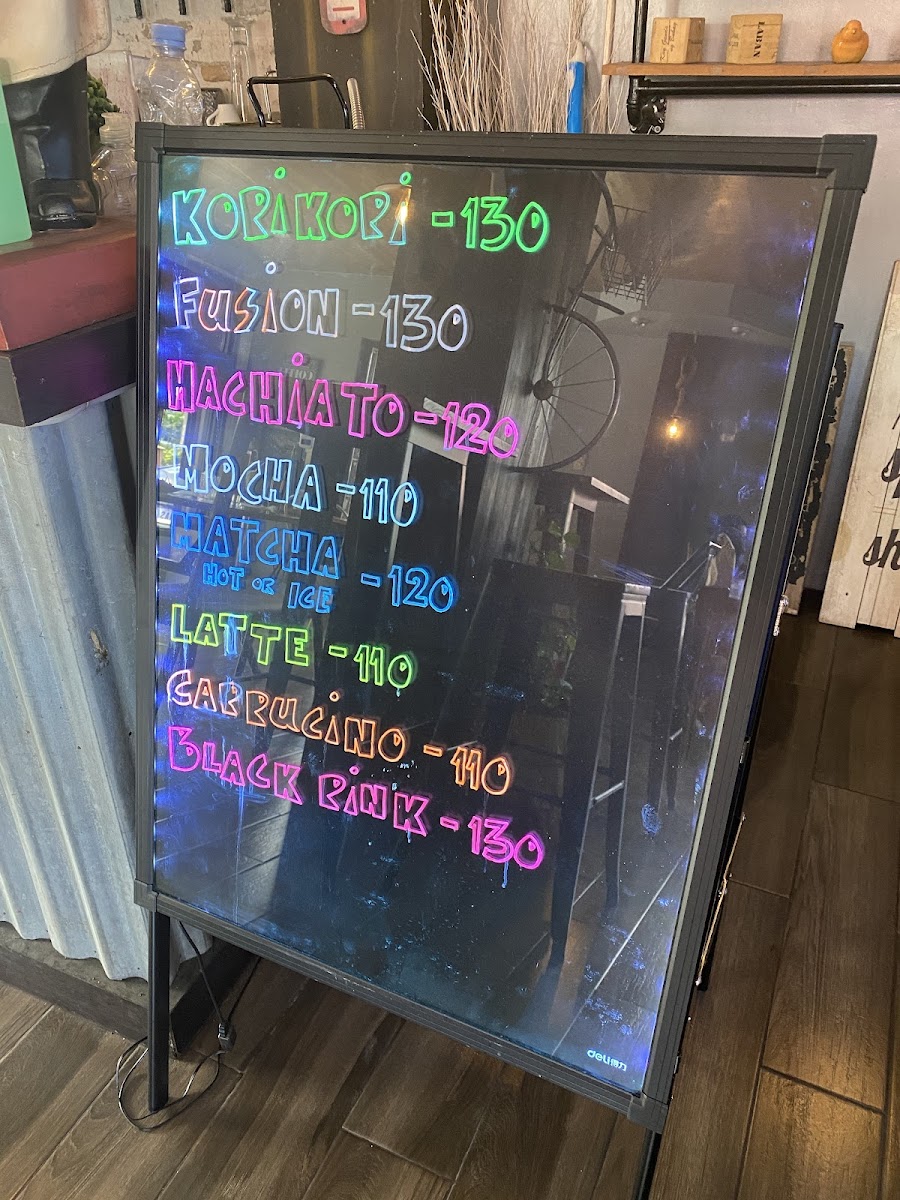 LABAN
KORiKORi -130
FUSiON -130
MACHiATO -120
MOCHA -110
MATCHA -120
HOT OR ICE
LATTE -110
CAPPUCiNO -110
BLACK PiNK -130
deli得力
sh